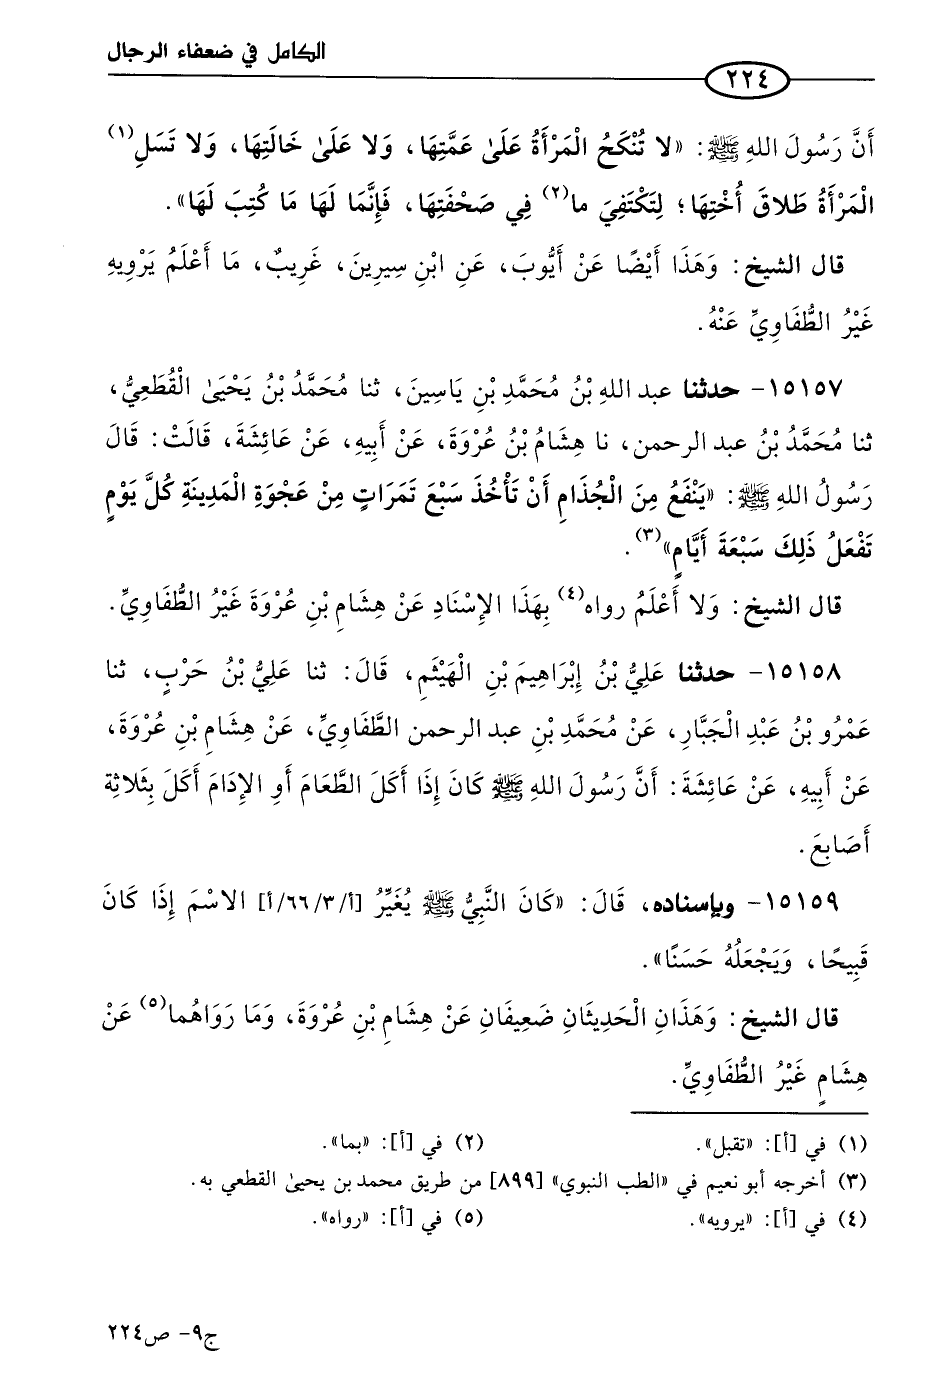 الكامل في ضعفاء الرجال
٢٢٤
أَنَّ رَسُولَ اللهِ ﷺ: «لا تُنْكَحُ الْمَرْأَةُ عَلَىٰ عَمَّتِهَا، وَلا عَلَىٰ خَالَتِهَا، وَلا تَسَلِ(١)
الْمَرْأَةُ طَلاقَ أُخْتِهَا؛ لِتَكْتَفِيَ ما(٢) فِي صَحْفَتِهَا، فَإِنَّمَا لَهَا مَا كُتِبَ لَهَا».
قال الشيخ: وَهَذَا أَيْضًا عَنْ أَيُّوبَ، عَنِ ابْنِ سِيرِينَ، غَرِيبٌ، مَا أَعْلَمُ يَرْوِيهِ
غَيْرُ الطُّفَاوِيِّ عَنْهُ.
١٥١٥٧- حدثنا عبد اللهِ بْنُ مُحَمَّدِ بْنِ يَاسِينَ، ثنا مُحَمَّدُ بْنُ يَحْيَىٰ الْقُطَعِيُّ،
ثنا مُحَمَّدُ بْنُ عبد الرحمن، نا هِشَامُ بْنُ عُرْوَةَ، عَنْ أَبِيهِ، عَنْ عَائِشَةَ، قَالَتْ: قَالَ
رَسُولُ اللهِ ﷺ: «يَنْفَعُ مِنَ الْجُذَامِ أَنْ تَأْخُذَ سَبْعَ تَمَرَاتٍ مِنْ عَجْوَةِ الْمَدِينَةِ كُلَّ يَوْمٍ
تَفْعَلُ ذَلِكَ سَبْعَةَ أَيَّامٍ»(٣).
قال الشيخ: وَلا أَعْلَمُ رواه(٤) بِهَذَا الإِسْنَادِ عَنْ هِشَامِ بْنِ عُرْوَةَ غَيْرُ الطُّفَاوِيِّ.
١٥١٥٨- حدثنا عَلِيُّ بْنُ إِبْرَاهِيمَ بْنِ الْهَيْثَمِ، قَالَ: ثنا عَلِيُّ بْنُ حَرْبٍ، ثنا
عَمْرُو بْنُ عَبْدِ الْجَبَّارِ، عَنْ مُحَمَّدِ بْنِ عبد الرحمن الطَّفَاوِيِّ، عَنْ هِشَامِ بْنِ عُرْوَةَ،
عَنْ أَبِيهِ، عَنْ عَائِشَةَ: أَنَّ رَسُولَ اللهِ ﷺ كَانَ إِذَا أَكَلَ الطَّعَامَ أَوِ الإِدَامَ أَكَلَ بِثَلاثِةِ
أَصَابِعَ.
١٥١٥٩- وبإسناده، قَالَ: «كَانَ النَّبِيُّ ﷺ يُغَيِّرُ [أ/٦٦/٣/أ] الاسْمَ إِذَا كَانَ
قَبِيحًا، وَيَجْعَلُهُ حَسَنًا».
قال الشيخ: وَهَذَانِ الْحَدِيثَانِ ضَعِيفَانِ عَنْ هِشَامِ بْنِ عُرْوَةَ، وَمَا رَوَاهُما(٥) عَنْ
هِشَامٍ غَيْرُ الطُّفَاوِيِّ.
(١) في [أ]: «تقبل». (٢) في [أ]: «بما».
(٣) أخرجه أبو نعيم في «الطب النبوي» [٨٩٩] من طريق محمد بن يحيىٰ القطعي به.
(٤) في [أ]: «يرويه». (٥) في [أ]: «رواه».
ج٩- ص٢٢٤